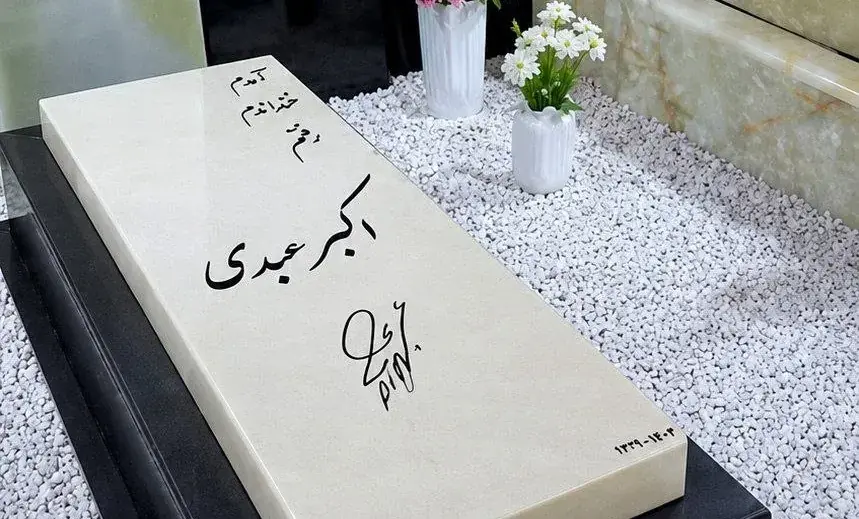 آمدم
خنداندم
رفتم
اکبر عبدی
۱۳۳۹-۱۴۰۳